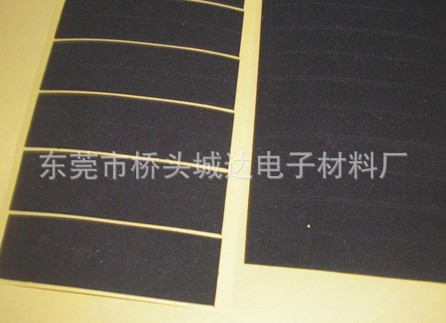 东莞市桥头城达电子材料厂